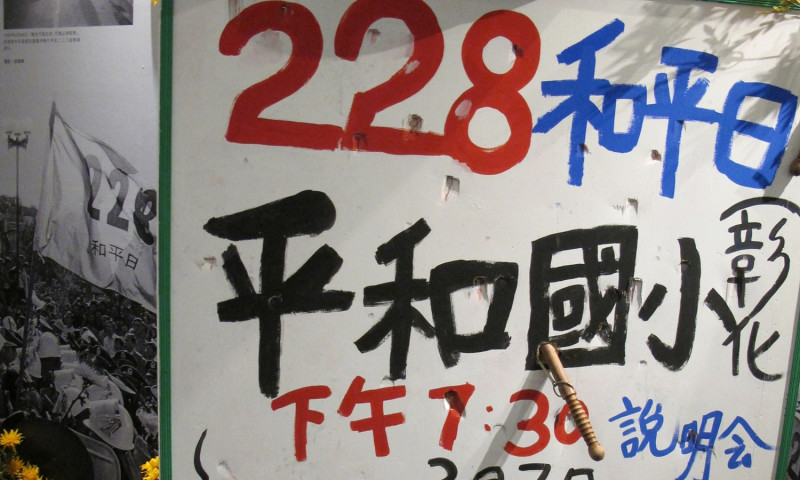 228和平日
平和國小(彰化
下午7:30 說明會
228
和平日